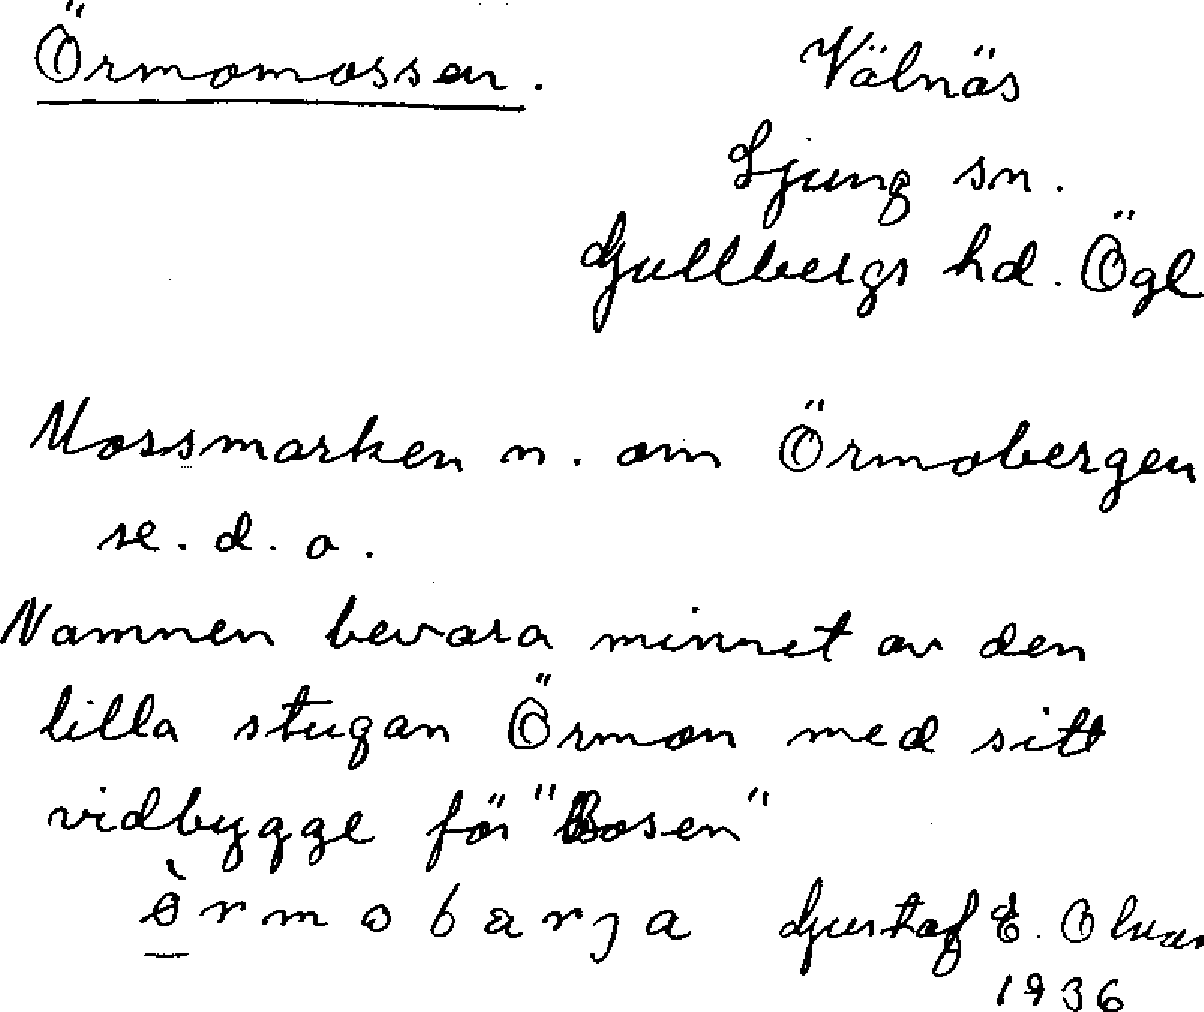 Örmomossen.
Välnäs
Ljung sn.
Gullbergs hd. Ögl
Mossmarken n. om Örmobergen
se. d. o.
Namnen bevara minnet av den
lilla stugan Örmon med sitt
vidbygge för "Bosen"
Gustaf E.
1936